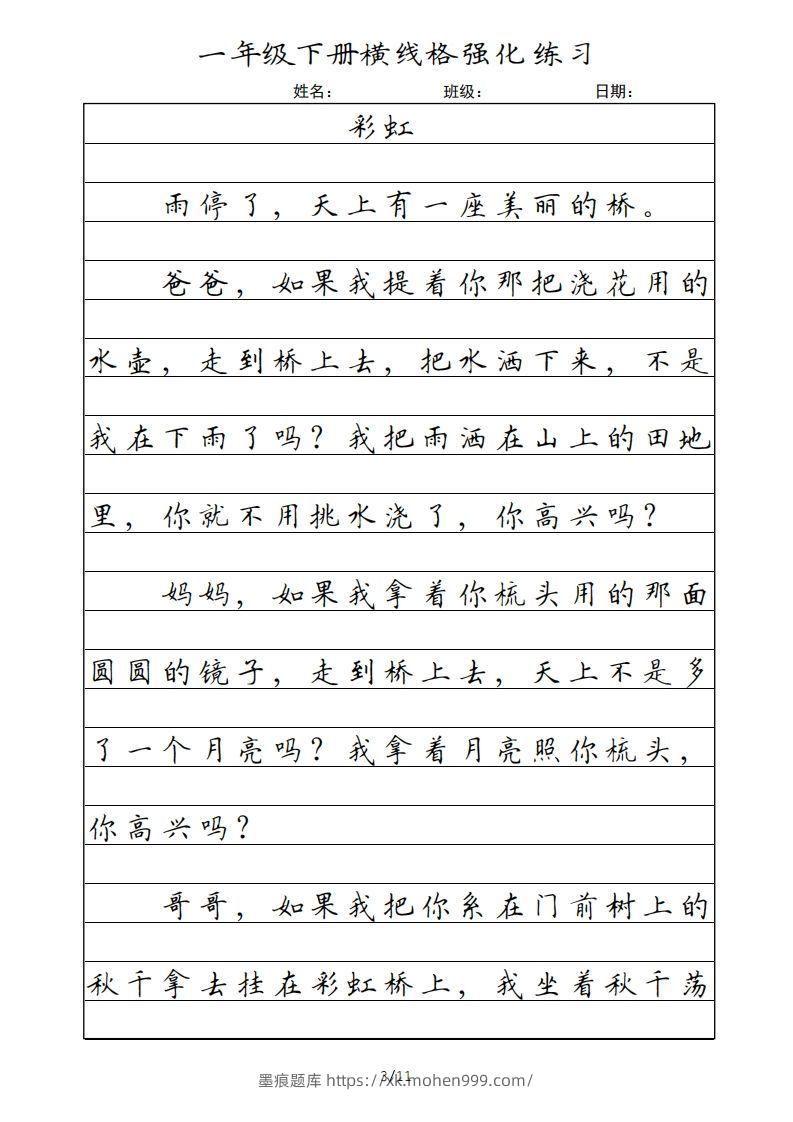 一年级下册横线格强化练习
姓名： 班级： 日期：
彩虹
雨停了，天上有一座美丽的桥。
爸爸，如果我提着你那把浇花用的
水壶，走到桥上去，把水洒下来，不是
我在下雨了吗？我把雨洒在山上的田地
里，你就不用挑水浇了，你高兴吗？
妈妈，如果我拿着你梳头用的那面
圆圆的镜子，走到桥上去，天上不是多
了一个月亮吗？我拿着月亮照你梳头，
你高兴吗？
哥哥，如果我把你系在门前树上的
秋千拿去挂在彩虹桥上，我坐着秋千荡
3/11
墨痕题库 https://xk.mohen999.com/